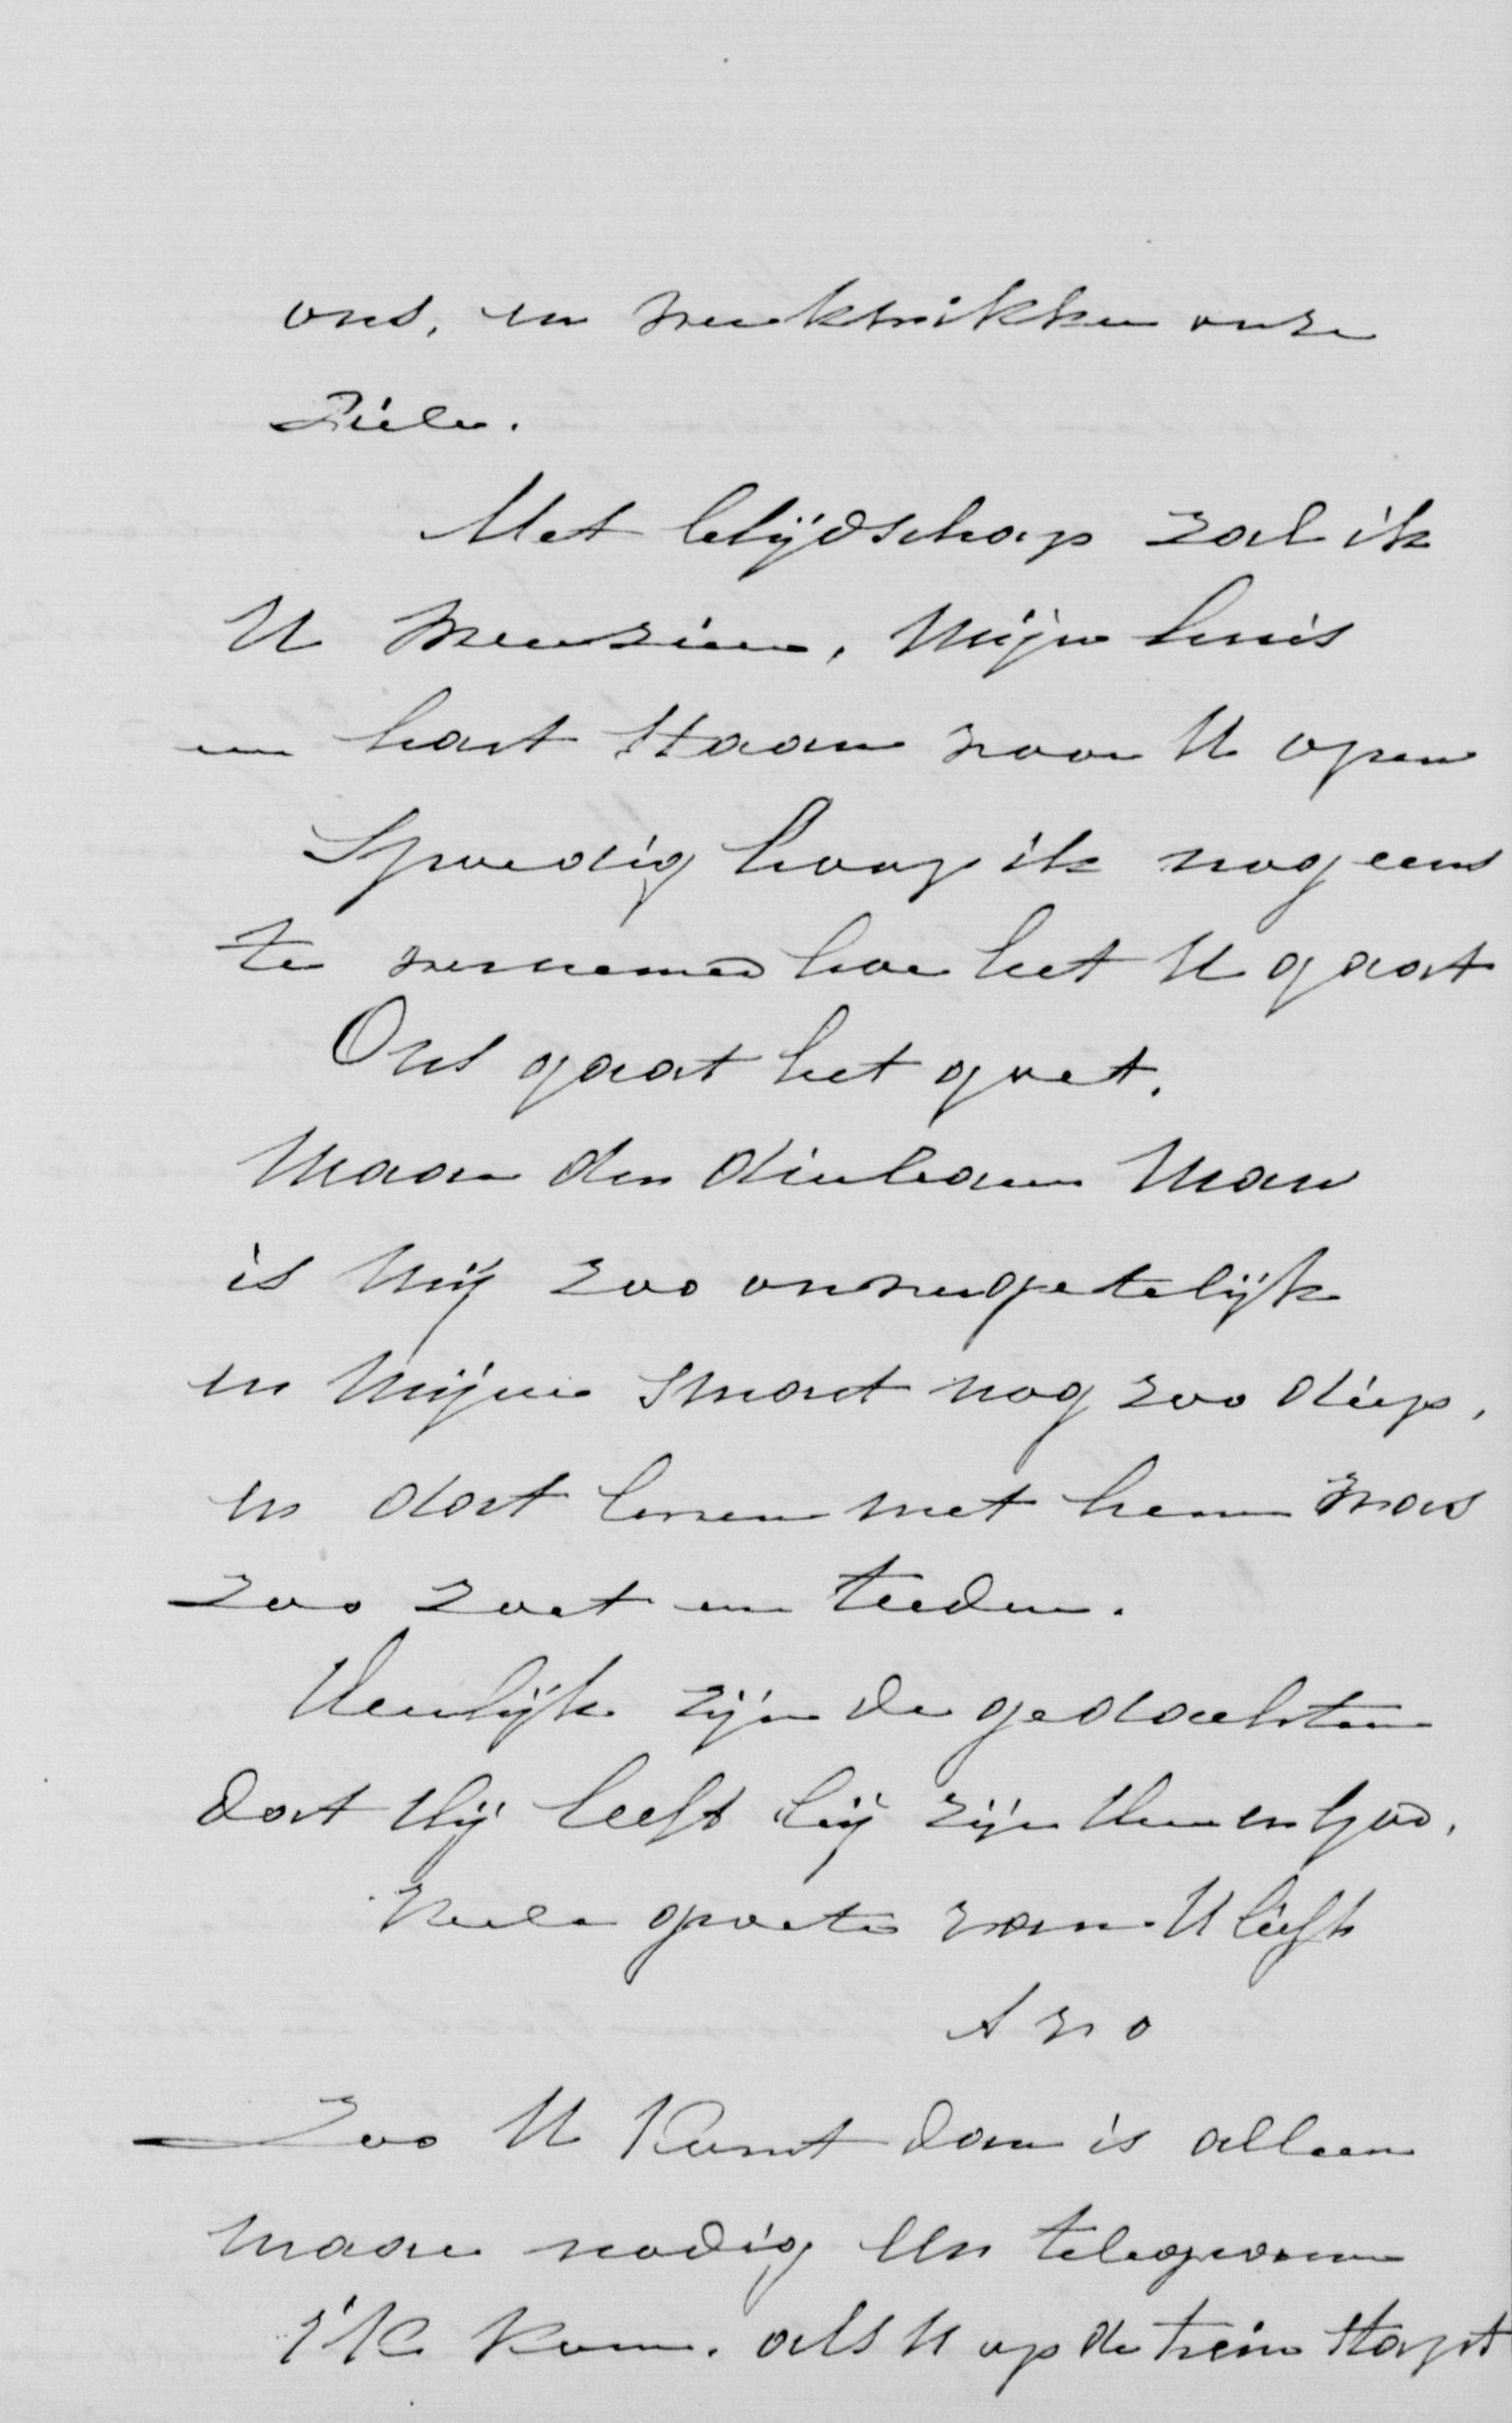 ons, en verkwikken onze
Ziele.
Met blijdschap zal ik
U weerzien, Mijn huis
en hart staan voor U open
Spoedig hoop ik nog eens
te vernemen hoe het U gaat
Ons gaat het goet.
Maar den dierbaren Man
is Mij zoo onvergetelijk
en Mijne Smart nog zoo diep,
en dat leven met hem was
zoo zoet en teeder.
Heerlijk zijn de gedachten
dat Hij leeft bij zijn Heer en God.
Veele groete van U liefh
A v O
Zoo U Komt dan is alleen
maar nodig Een telegram
IK Kom. als U op de trein stapt